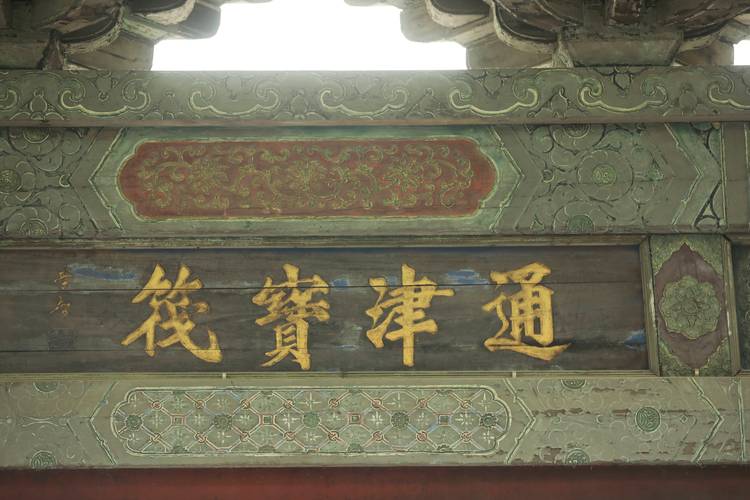 通津寶筏